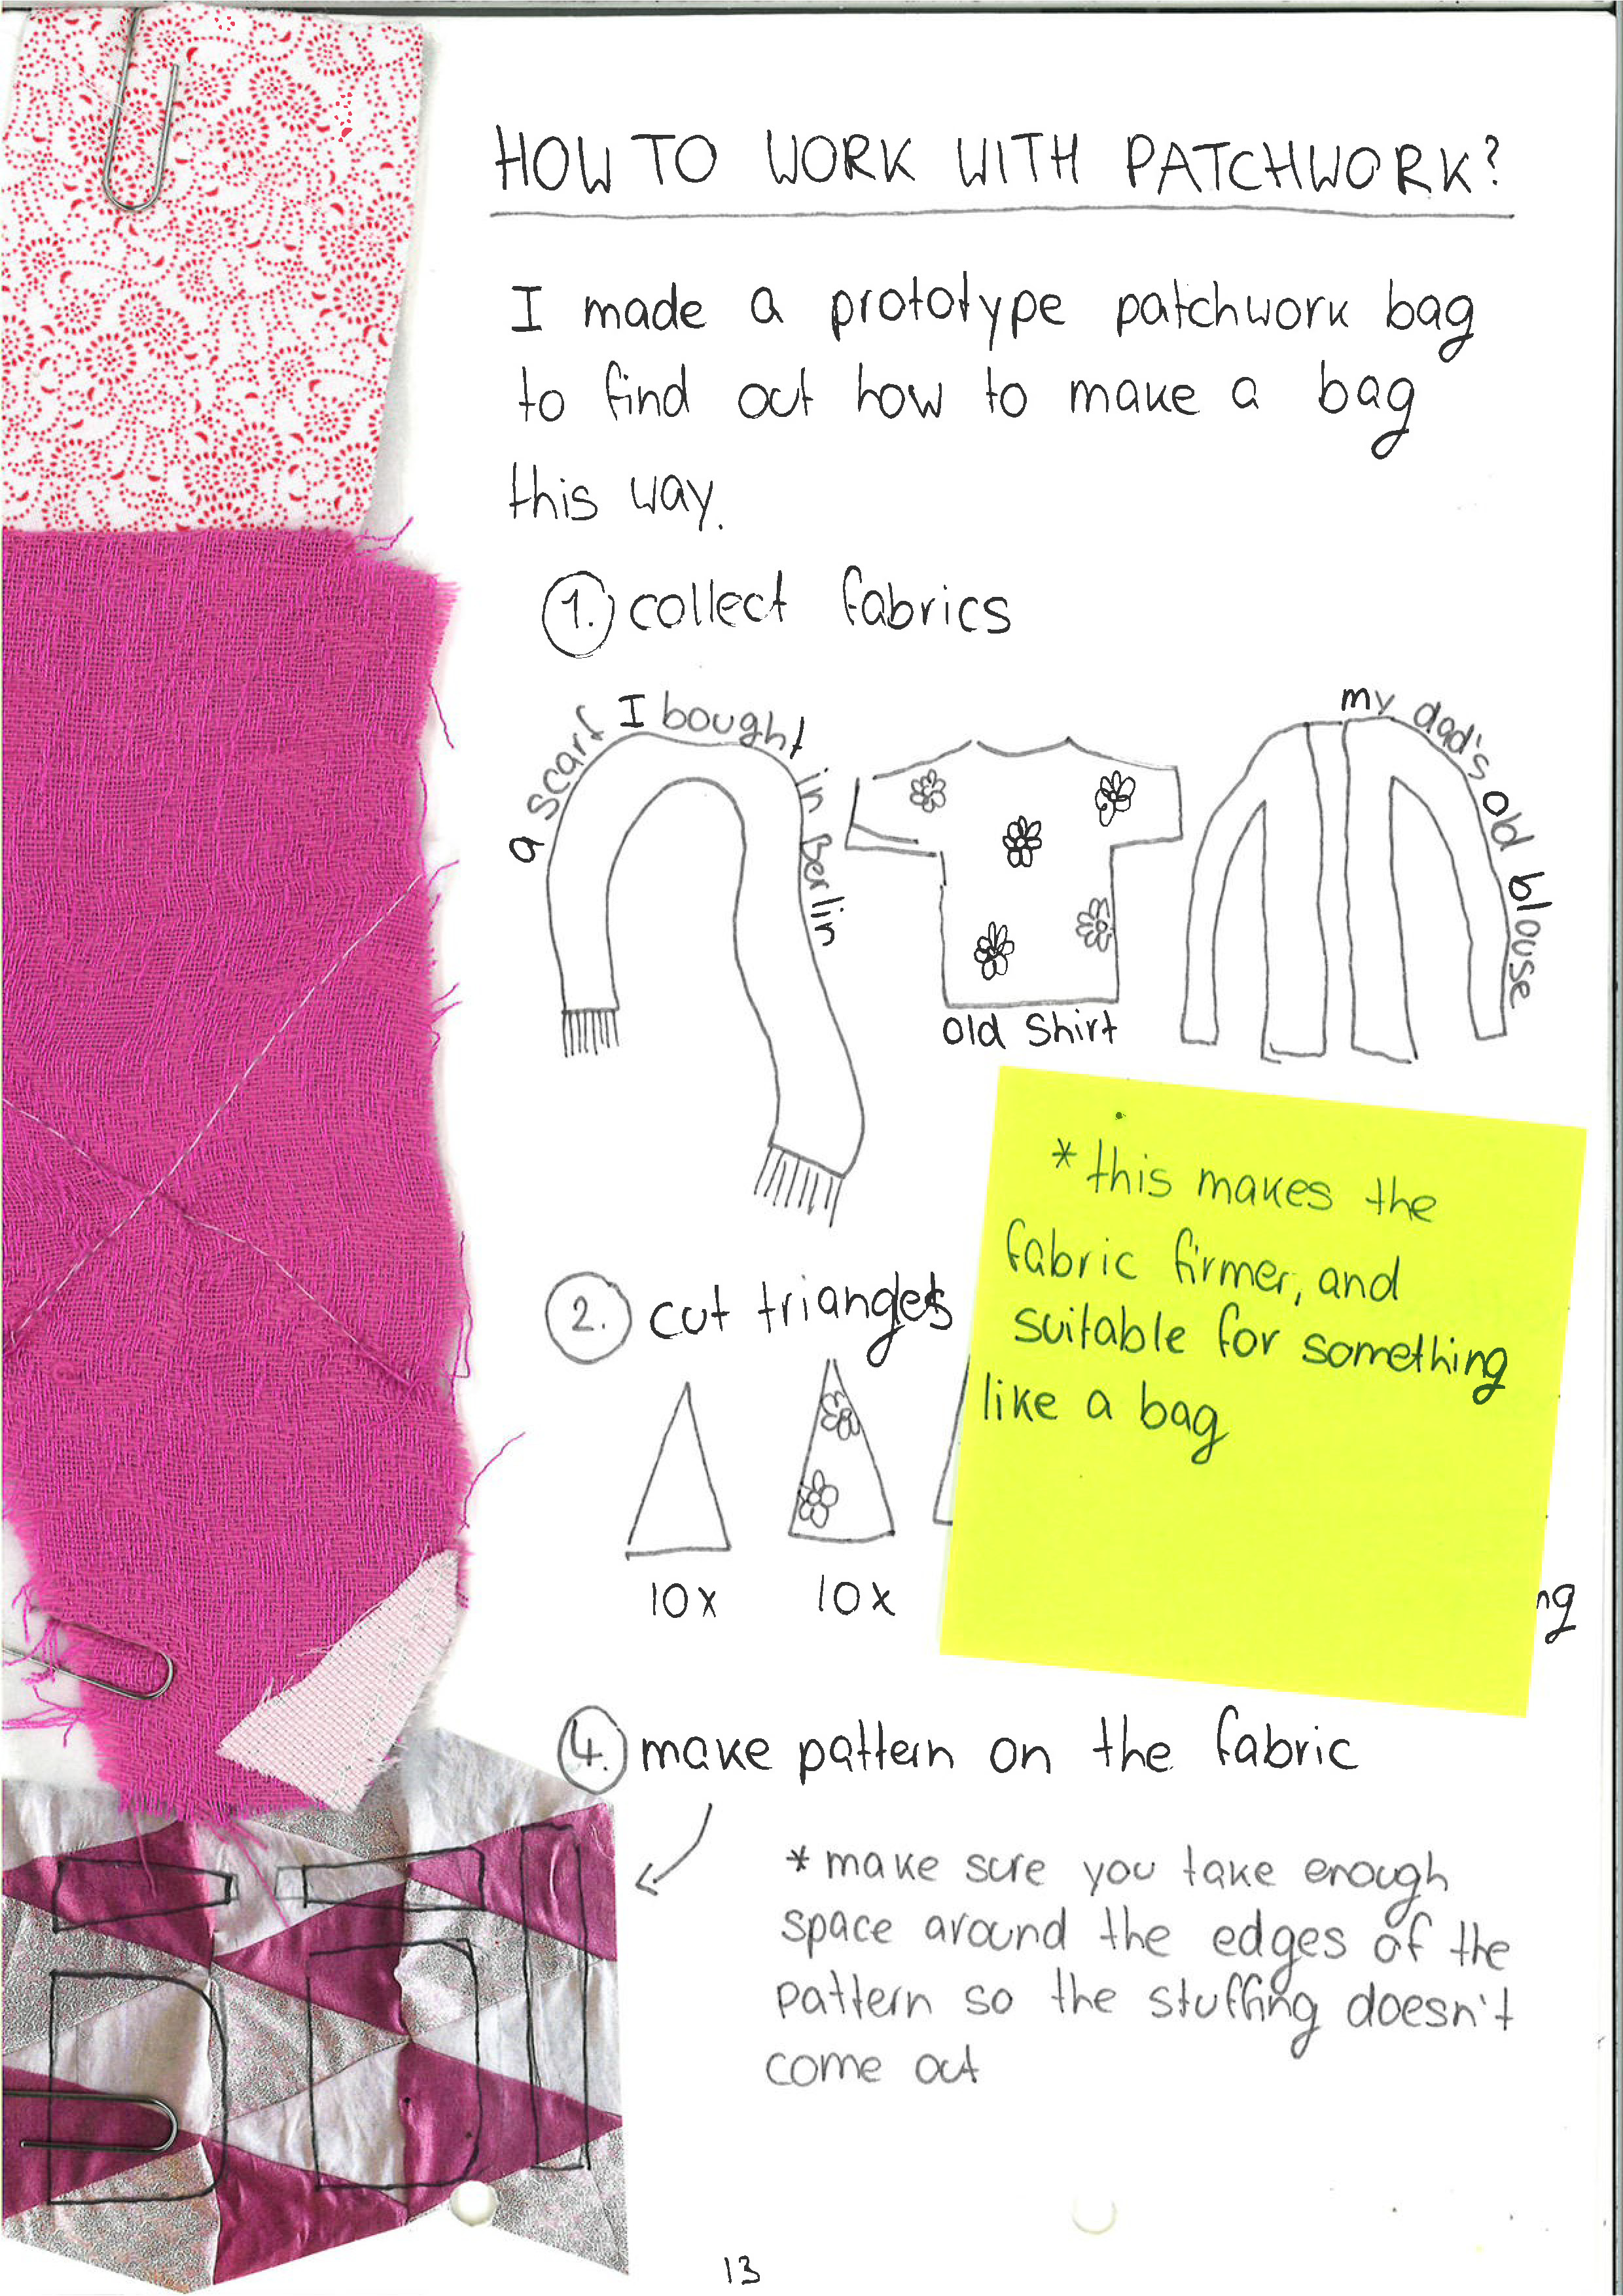 HOW TO WORK WITH PATCHWORK?
I made a prototype patchwork bag
to find out how to make a bag
this way.
1. collect fabrics
a scarf I bought in Berlin
old shirt
my dad's old blouse
* this makes the
fabric firmer, and
suitable for something
like a bag
2. cut triangles
10x
10x
ng
4. make pattern on the fabric
* make sure you take enough
space around the edges of the
pattern so the stuffing doesn't
come out
13